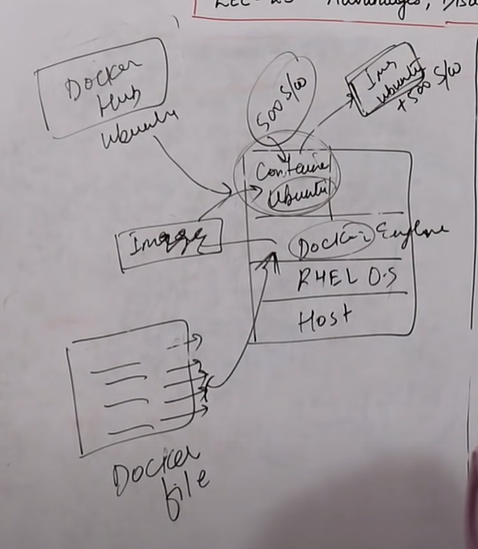 Advantages,
Docker
Hub
Ubuntu
500 S/W
Img
Ubuntu
+ 500 S/W
Container
Ubuntu
Image
Docker Engine
RHEL O.S
Host
Docker
file